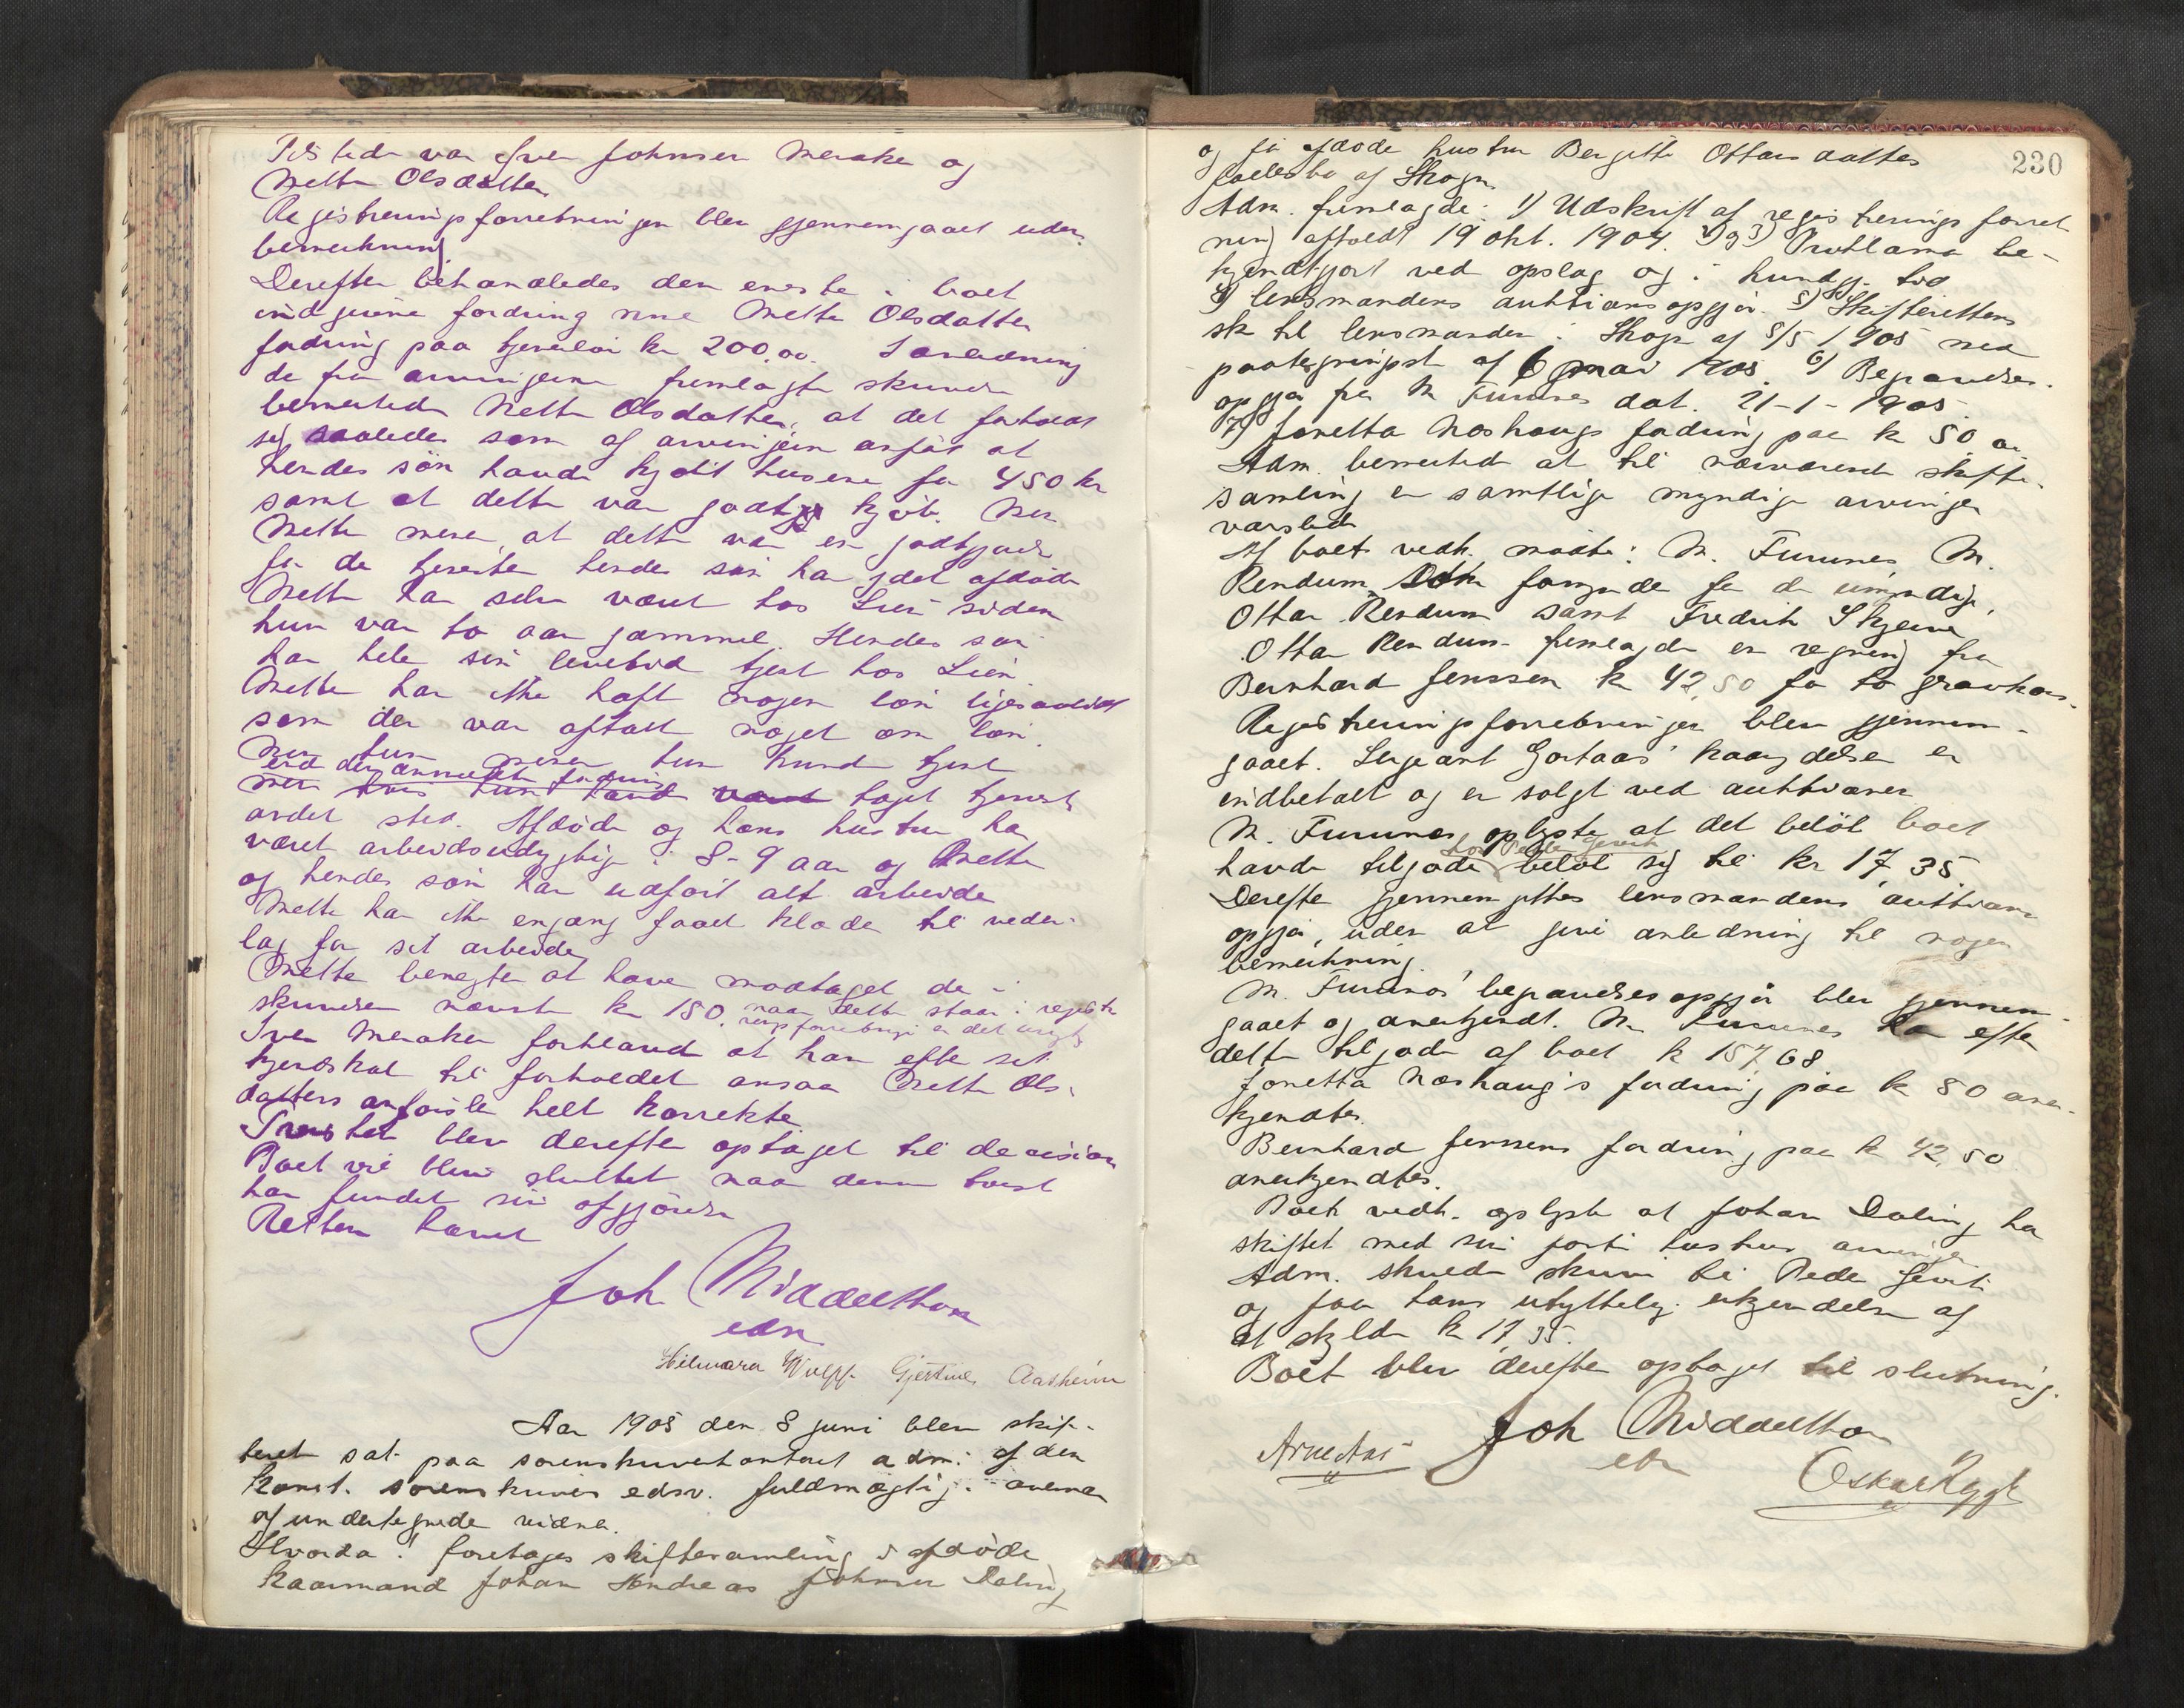 Tilstede var Iver Johnsen Meraker og
Mette Olsdatter.
Registreringsforretningen blev gjennemgaaet uden
bemerkning.
Derefter behandledes den eneste i boet
indgivne fordring nml Mette Olsdatters
fordring paa tjenerløn kr 200.00. I anledning
de fra arvingerne fremlagte skrivelse
bemerkede Mette Olsdatter, at det forholdt
sig saaledes som af arvingerne anført at
hendes søn havde kjøbt husene for 450 kr
samt at dette var godt kjøb. Men
Mette mener at dette var en godtgjørelse
for de tjenester hendes søn har gjort afdøde
Mette har selv været hos Lien siden
hun var to aar gammel. Hendes søn
har hele sin levetid tjent hos Lien.
Mette har ikke haft nogen løn ligesaalidt
som der var aftalt noget om løn.
Men hun mener hun kunde tjent
ved den anmeldte fordring
men hvis hun havde været taget tjeneste
andet sted. Afdøde og hans hustru har
været arbeidsudygtige i 8-9 aar og Mette
og hendes søn har udført alt arbeide
Mette har ikke engang faaet klæder til veder-
lag for sit arbeide
Mette benegter at have modtaget de i
skrivelsen nævnte kr 150. naar dette staar i registre
ringsforretningen er det urigtigt
Iver Meraker forklared at han efter sit
kjendskab til forholdet ansaa Mette Ols-
datters anførsler helt korrekte.
Tvisten blev derefter optaget til decision
Boet vil blive sluttet naar denne tvist
har fundet sin afgjørelse
Retten hævet
Joh Middelthon
edsv
Hilmara Wulff Gjertine Aasheim
Aar 1905 den 8 juni blev skif-
teret sat paa sorenskriverkontoret adm. af den
konst. sorenskriver edsv. fuldmægtig i overvær
af undertegnede vidner.
Hvorda: foretoges skiftesamling i afdøde
kaarmand Johan Andreas Johnsen Daling
230
og før afdøde hustru Bergitte Ottarsdatters
fællesbo af Skogn.
Adm. fremlagde: 1) Udskrift af registreringsforret
ning afholdt 19 okt. 1904. 2) og 3) Proklama be-
kjendtgjort ved opslag og i kundgj. tid
4) lensmandens auktionsopgjør. 5) Skifterettens
sk til lensmanden i Skogn af 8/5 1905 med
paategningssk af 6 mai 1905. 6) Begravelses-
opgjør fra M Furunes dat. 21-1-1905.
7) Jonetta Moshaugs fordring paa kr 50.00
Adm. bemerkede at til nærværende skifte-
samling er samtlige myndige arvinger
varslede
Af boets vedk. mødte: M. Furunes, M.
Rendum, formynder for de umyndige,
Ottar Rendum samt Fredrik Skjerve
Ottar Rendum fremlagde en regning fra
Bernhard Jenssen kr 42,50 for to gravkors.
Registreringsforretningen blev gjennem-
gaaet. Sergeant Gortaas' kaarydelse er
indbetalt og er solgt ved auktionen
M. Furunes oplyste at det beløb boet
hos Peder Jevik
havde tilgode beløb sig til kr 17,35.
Derefter gjennemgikkes lensmandens auktions
opgjør, uden at give anledning til nogen
bemerkning.
M. Furunes' begravelsesopgjør blev gjennem-
gaaet og anerkjendt. M. Furunes har efter
dette tilgode af boet kr 157,68
Jonetta Moshaug's fordring paa kr 50 aner-
kjendtes.
Bernhard Jenssens fordring paa kr 42,50
anerkjendtes.
Boets vedk. oplyste at Johan Daling har
skiftet med sin første hustrus arvinger
Adm. skulde skrive til Peder Jevik
og faa hans utvilsomme erkjendelse af
at skylde kr 17,35.
Boet blev derefter optaget til slutning.
Joh Middelthon
edsv
Arne Aas
Oskar Rygh